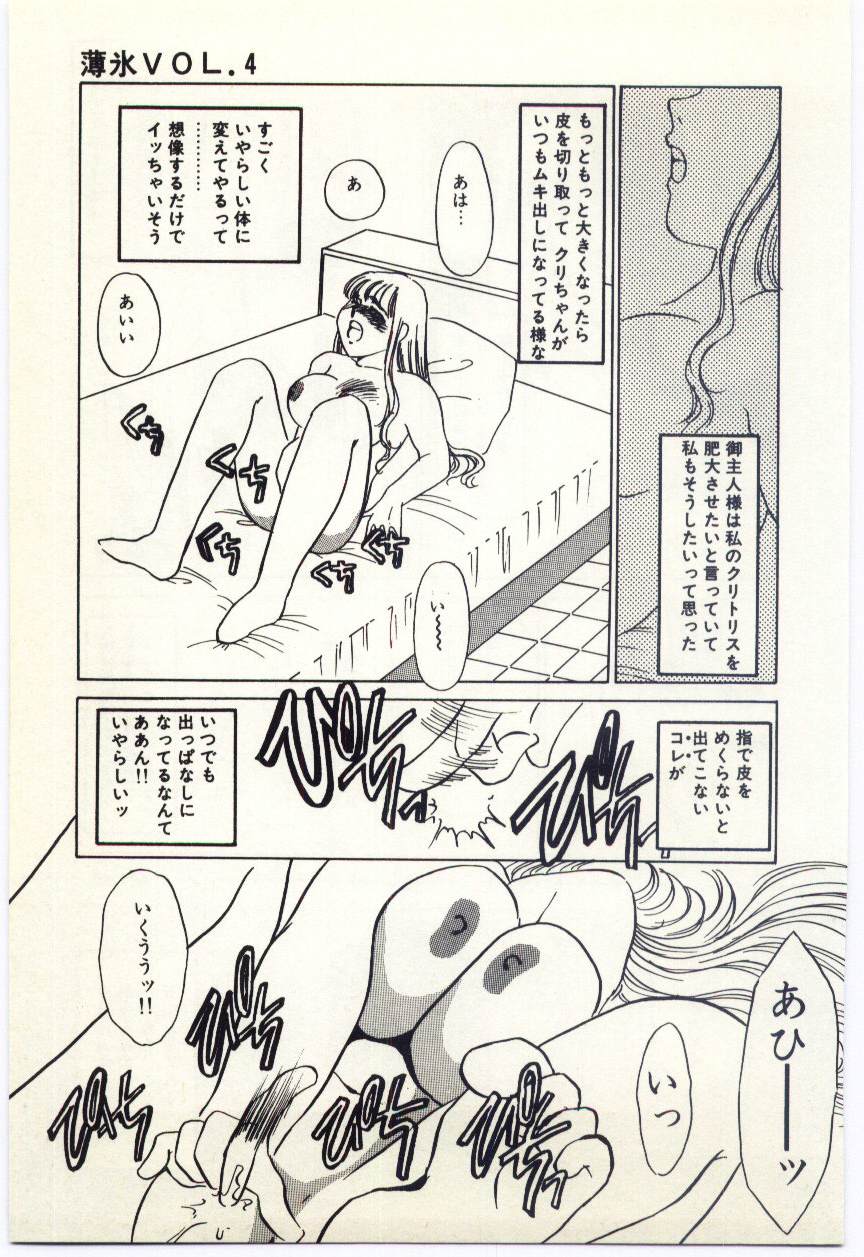 薄氷ＶＯＬ.4
御主人様は私のクリトリスを
肥大させたいと言っていて
私もそうしたいって思った
もっともっと大きくなったら
皮を切り取って クリちゃんが
いつもムキ出しになってる様な
あは…
あ
すごく
いやらしい体に
変えてやるって
…………
想像するだけで
イッちゃいそう
あいい
くち
くち
くち
くち
くち
い〜〜〜
指で皮を
めくらないと
出てこない
コレが
ぴち
ぴち
いつでも
出っぱなしに
なってるなんて
ああん!!
いやらしいッ
あひーーッ
いっ
いくううッ!!
ぴち
ぴち
ぴち
ぴち